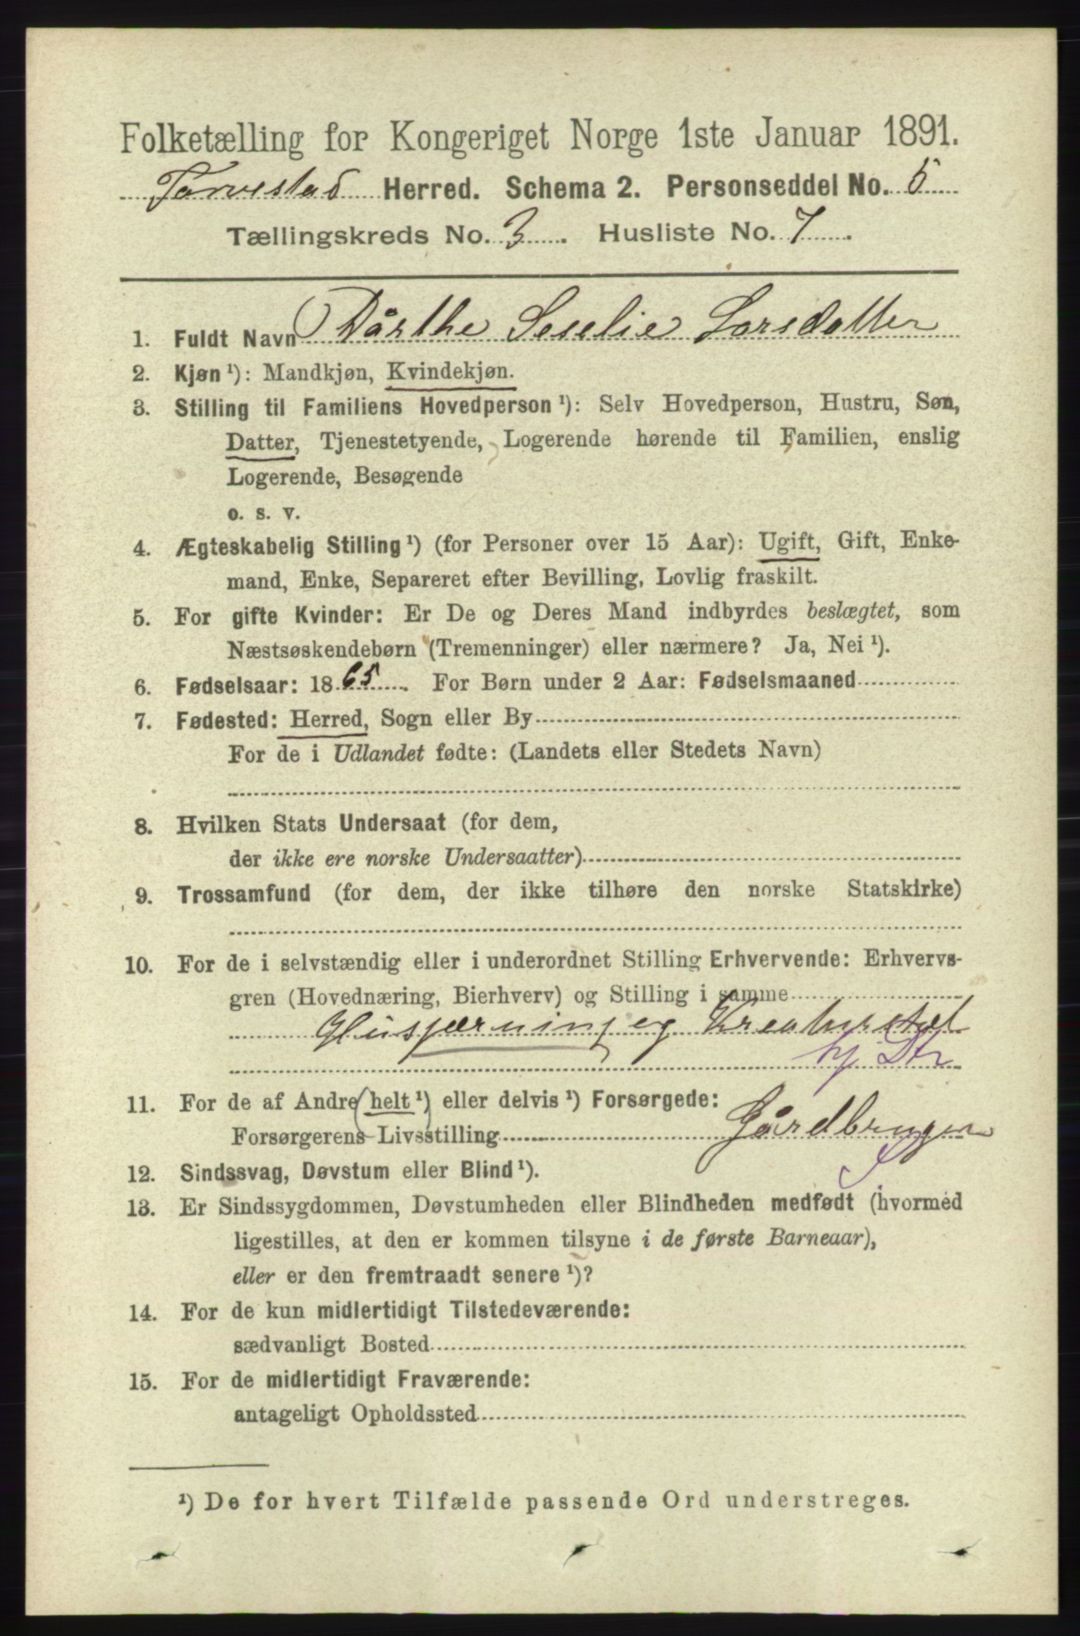 Folketælling for Kongeriget Norge 1ste Januar 1891.
Torvestad Herred. Schema 2. Personseddel No. 5
Tællingskreds No. 3. Husliste No. 7.
1. Fuldt Navn Dårthe Seselie Larsdatter
2. Kjøn ¹): Mandkjøn, Kvindekjøn.
3. Stilling til Familiens Hovedperson ¹): Selv Hovedperson, Hustru, Søn,
Datter, Tjenestetyende, Logerende hørende til Familien, enslig
Logerende, Besøgende
o. s. v.
4. Ægteskabelig Stilling ¹) (for Personer over 15 Aar): Ugift, Gift, Enke-
mand, Enke, Separeret efter Bevilling, Lovlig fraskilt.
5. For gifte Kvinder: Er De og Deres Mand indbyrdes beslægtet, som
Næstsøskendebørn (Tremenninger) eller nærmere? Ja, Nei ¹).
6. Fødselsaar: 1865. For Børn under 2 Aar: Fødselsmaaned
7. Fødested: Herred, Sogn eller By
For de i Udlandet fødte: (Landets eller Stedets Navn)
8. Hvilken Stats Undersaat (for dem,
der ikke ere norske Undersaatter)
9. Trossamfund (for dem, der ikke tilhøre den norske Statskirke)
10. For de i selvstændig eller i underordnet Stilling Erhvervende: Erhvervs-
gren (Hovednæring, Bierhverv) og Stilling i samme
Husgjærning og Kreaturstel
hj Dtr
11. For de af Andre (helt ¹) eller delvis ¹) Forsørgede:
Forsørgerens Livsstilling Gårdbruger
S
12. Sindssvag, Døvstum eller Blind ¹).
13. Er Sindssygdommen, Døvstumheden eller Blindheden medfødt (hvormed
ligestilles, at den er kommen tilsyne i de første Barneaar),
eller er den fremtraadt senere ¹)?
14. For de kun midlertidigt Tilstedeværende:
sædvanligt Bosted
15. For de midlertidigt Fraværende:
antageligt Opholdssted
¹) De for hvert Tilfælde passende Ord understreges.